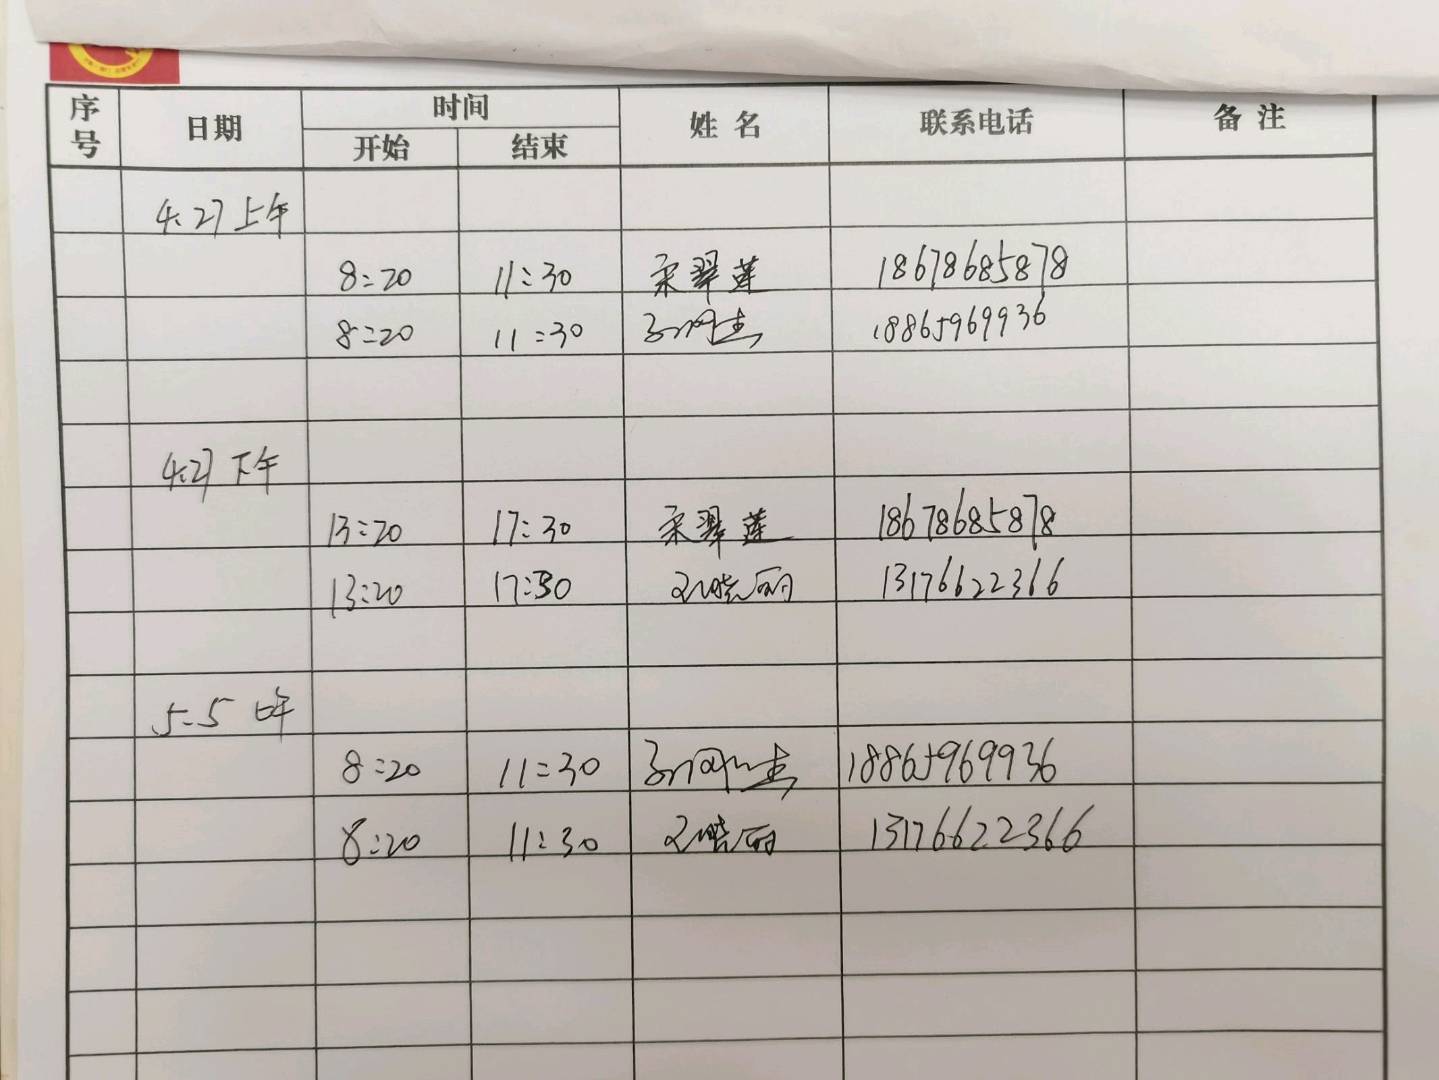 序号 日期 时间 姓名 联系电话 备注
开始 结束
4.27上午
8:20 11:30 宋翠莲 18678685878
8:20 11:30 18865969936
4.27下午
13:20 17:30 宋翠莲 18678685878
13:20 17:30 13176622366
5.5 上午
8:20 11:30 18865969936
8:20 11:30 13176622366